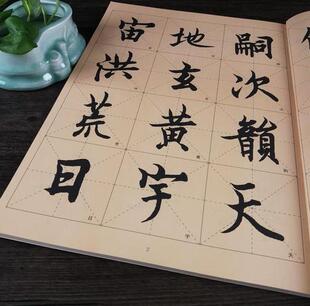 嗣次韻天
地玄黃宇
宙洪荒日